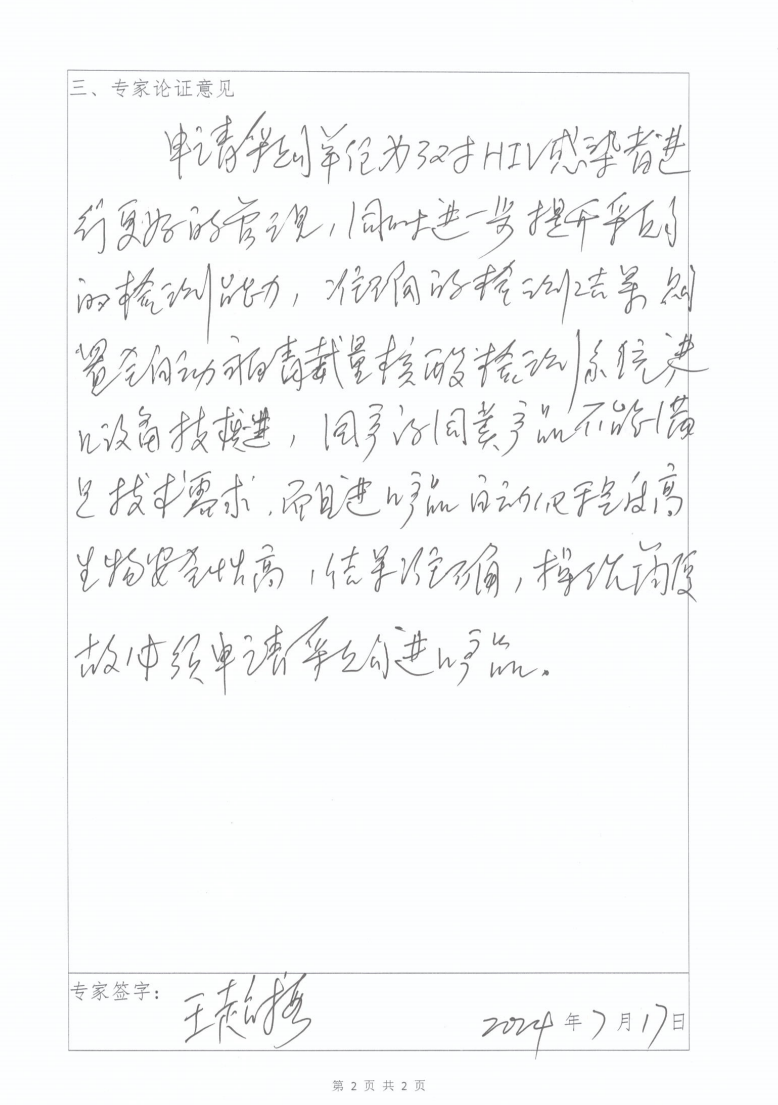 三、专家论证意见
申请采购单位为了对HIV感染者进
行更好的管理,同时进一步提升
的检测能力,准确的检测结果,购
置全自动病毒载量核酸检测系统进
口设备技,国产的同类产品不能满
足技术需求,而且进口产品自动化程度高
生物安全性高,结果准确,操作简便
故申请采购进口产品。
专家签字:
王
2024年7月17日
第 2 页 共 2 页